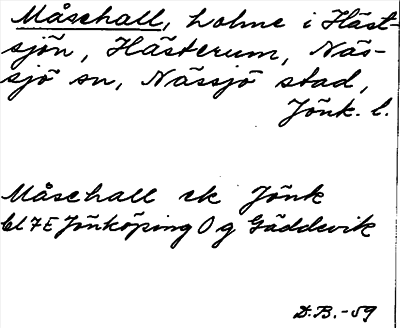 Måsehall, holme i Häst-
sjön, Hästerum, Näs-
sjö sn, Nässjö stad,
Jönk. l.
Måsehall ek Jönk
bl 7E Jönköping O g Gäddevik
D.B. -59